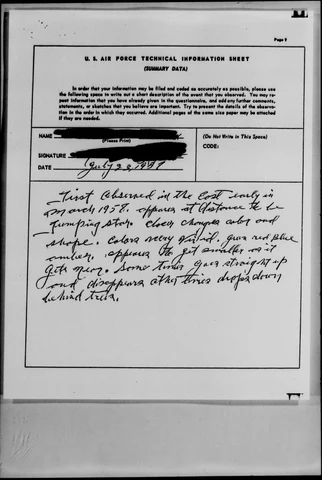 Page 9
U. S. AIR FORCE TECHNICAL INFORMATION SHEET
(SUMMARY DATA)
In order that your information may be filed and coded as accurately as possible, please use
the following space to write out a short description of the event that you observed. You may re-
peat information that you have already given in the questionnaire, and add any further comments,
statements, or sketches that you believe are important. Try to present the details of the observa-
tion in the order in which they occurred. Additional pages of the same size paper may be attached
if they are needed.
NAME
(Please Print)
SIGNATURE
DATE July 23, 1957
(Do Not Write in This Space)
CODE:
First observed in the East early in
March 1957. appears at distance to be
jumping star. closer changes color and
shape. Colors very vivid. green red blue
amber. appears to get smaller as it
gets near. Some times goes straight up
and disappears other times drops down
behind trees.